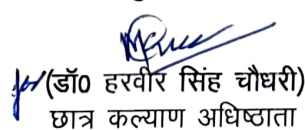 for (डॉ0 हरवीर सिंह चौधरी)
छात्र कल्याण अधिष्ठाता